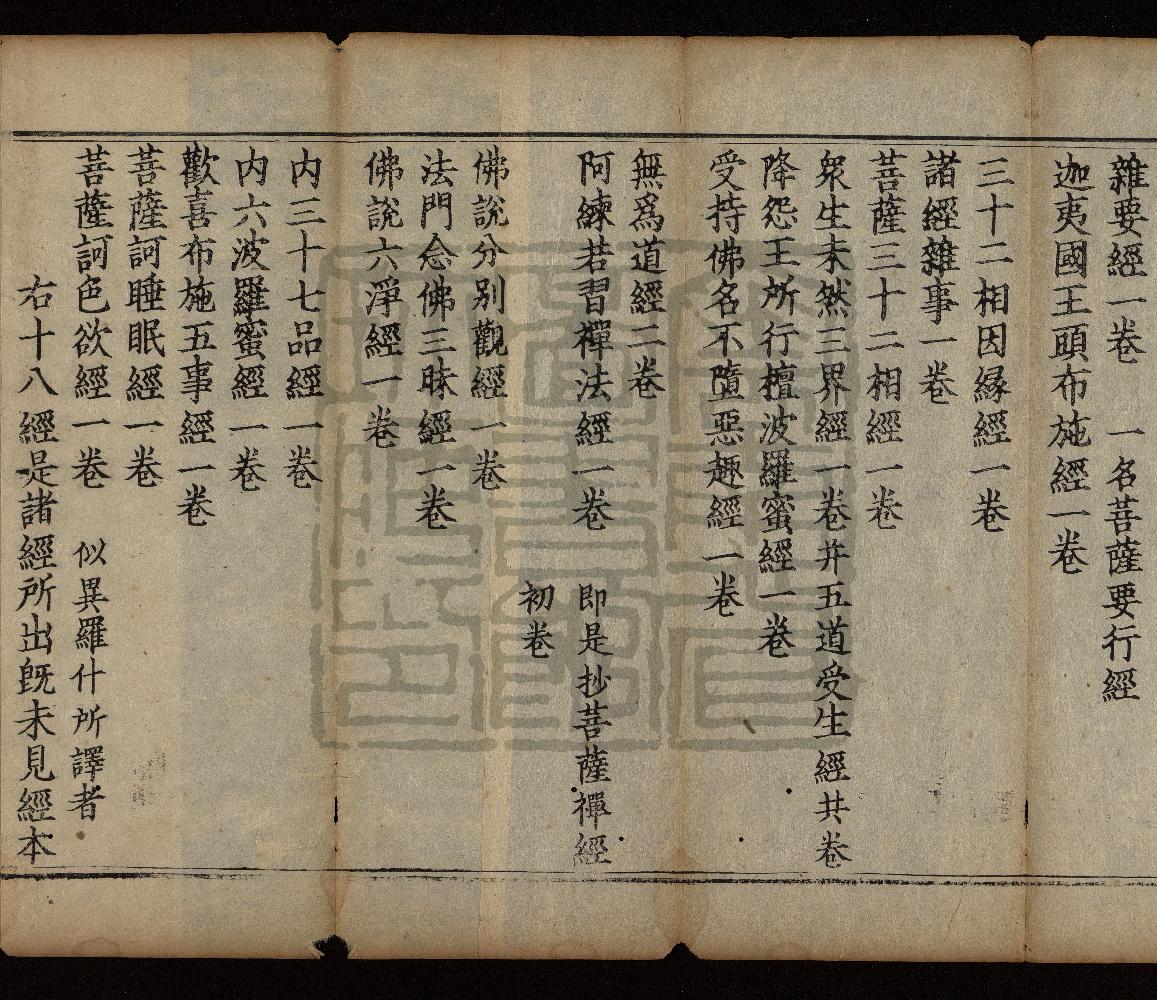 雜要經一卷　一名菩薩要行經
迦夷國王頭布施經一卷
三十二相因緣經一卷
諸經雜事一卷
菩薩三十二相經一卷
衆生未然三界經一卷并五道受生經共卷
降怨王所行檀波羅蜜經一卷
受持佛名不墮惡趣經一卷
無爲道經二卷
阿練若習禪法經一卷　即是抄菩薩禪經
初卷
佛說分別觀經一卷
法門念佛三昧經一卷
佛說六淨經一卷
内三十七品經一卷
内六波羅蜜經一卷
歡喜布施五事經一卷
菩薩訶睡眠經一卷
菩薩訶色欲經一卷　似異羅什所譯者
右十八經是諸經所出旣未見經本